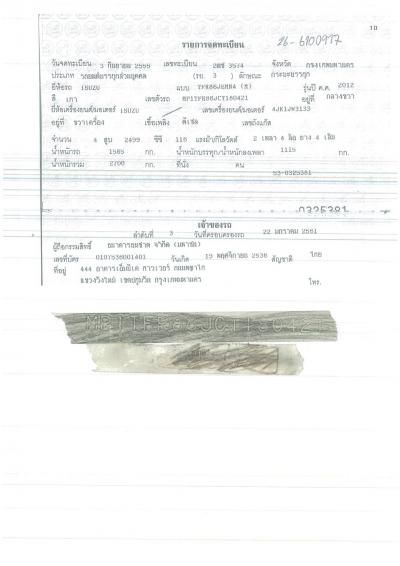 10
26-6900977
รายการจดทะเบียน
วันจดทะเบียน 5 กันยายน 2555 เลขทะเบียน 2ฒช 3574 จังหวัด กรุงเทพมหานคร
ประเภท รถยนต์บรรทุกส่วนบุคคล (รย. 3 ) ลักษณะ กระบะบรรทุก
ยี่ห้อรถ ISUZU แบบ รุ่นปี ค.ศ. 2012
สี เทา เลขตัวรถ MP1TFR86JCT160421 อยู่ที่ กลางขวา
ยี่ห้อเครื่องยนต์ ISUZU เลขเครื่องยนต์ 4JK1JW3133
อยู่ที่ ขวาเครื่อง เชื้อเพลิง ดีเซล เลขถังแก๊ส
จำนวน 4 สูบ 2499 ซีซี 116 แรงม้า/กิโลวัตต์ 2 เพลา 4 ล้อ ยาง 4 เส้น
น้ำหนักรถ 1585 กก. น้ำหนักบรรทุก/น้ำหนักลงเพลา 1115 กก.
น้ำหนักรวม 2700 กก. ที่นั่ง คน
53-0325381
0325381
เจ้าของรถ
ลำดับที่ 3 วันที่ครอบครองรถ 22 มกราคม 2561
ผู้ถือกรรมสิทธิ์ ธนาคารธนชาต จำกัด (มหาชน)
เลขที่บัตร 0107536001401 วันเกิด 19 พฤศจิกายน 2536 สัญชาติ ไทย
ที่อยู่ 444 อาคารเอ็มบีเค ทาวเวอร์ ถนนพญาไท
แขวงวังใหม่ เขตปทุมวัน กรุงเทพมหานคร โทร.